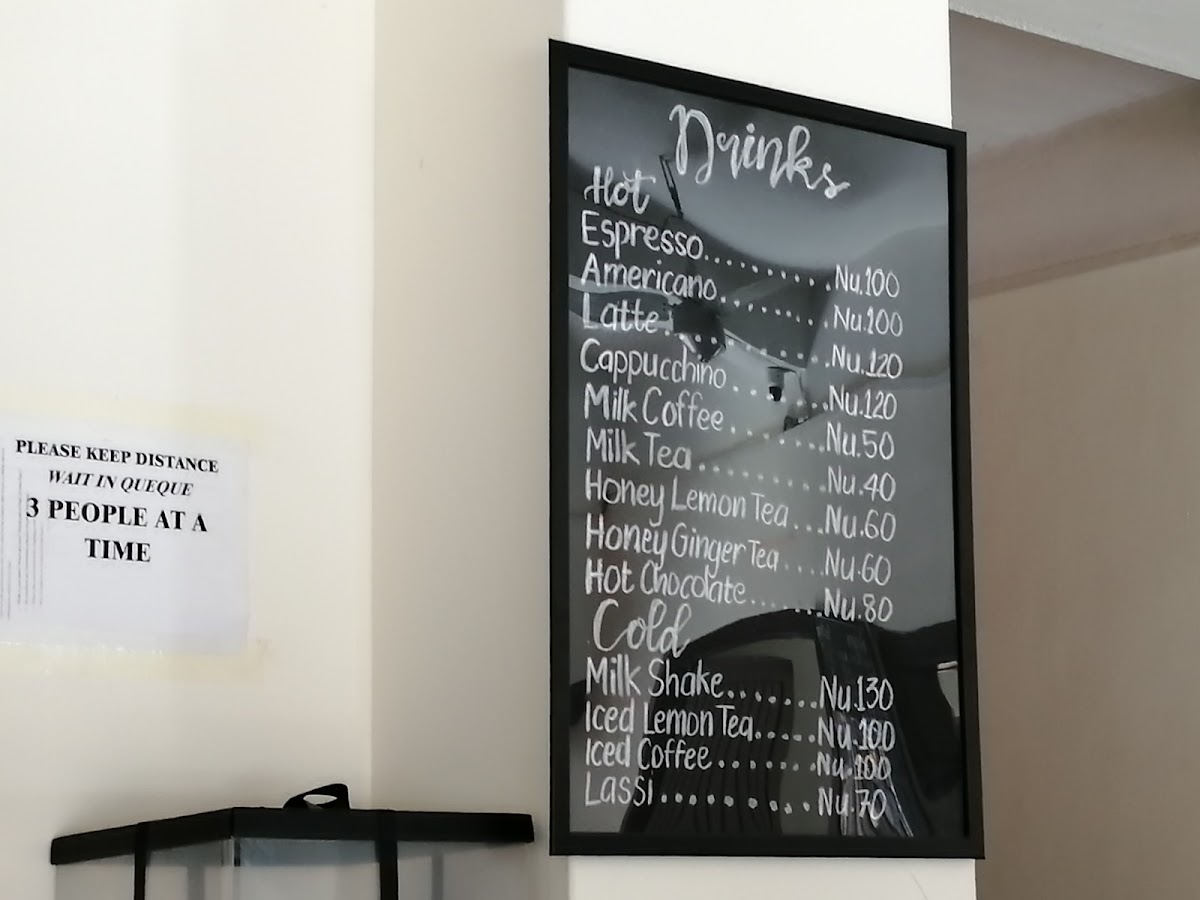 PLEASE KEEP DISTANCE
WAIT IN QUEQUE
3 PEOPLE AT A
TIME
Drinks
Hot
Espresso..........Nu.100
Americano.........Nu.100
Latte............Nu.120
Cappucchino........Nu.120
Milk Coffee........Nu.50
Milk Tea..........Nu.40
Honey Lemon Tea...Nu.60
Honey Ginger Tea....Nu.60
Hot Chocolate.......Nu.80
Cold
Milk Shake........Nu.130
Iced Lemon Tea.....Nu.100
Iced Coffee.......Nu.100
Lassi..........Nu.70